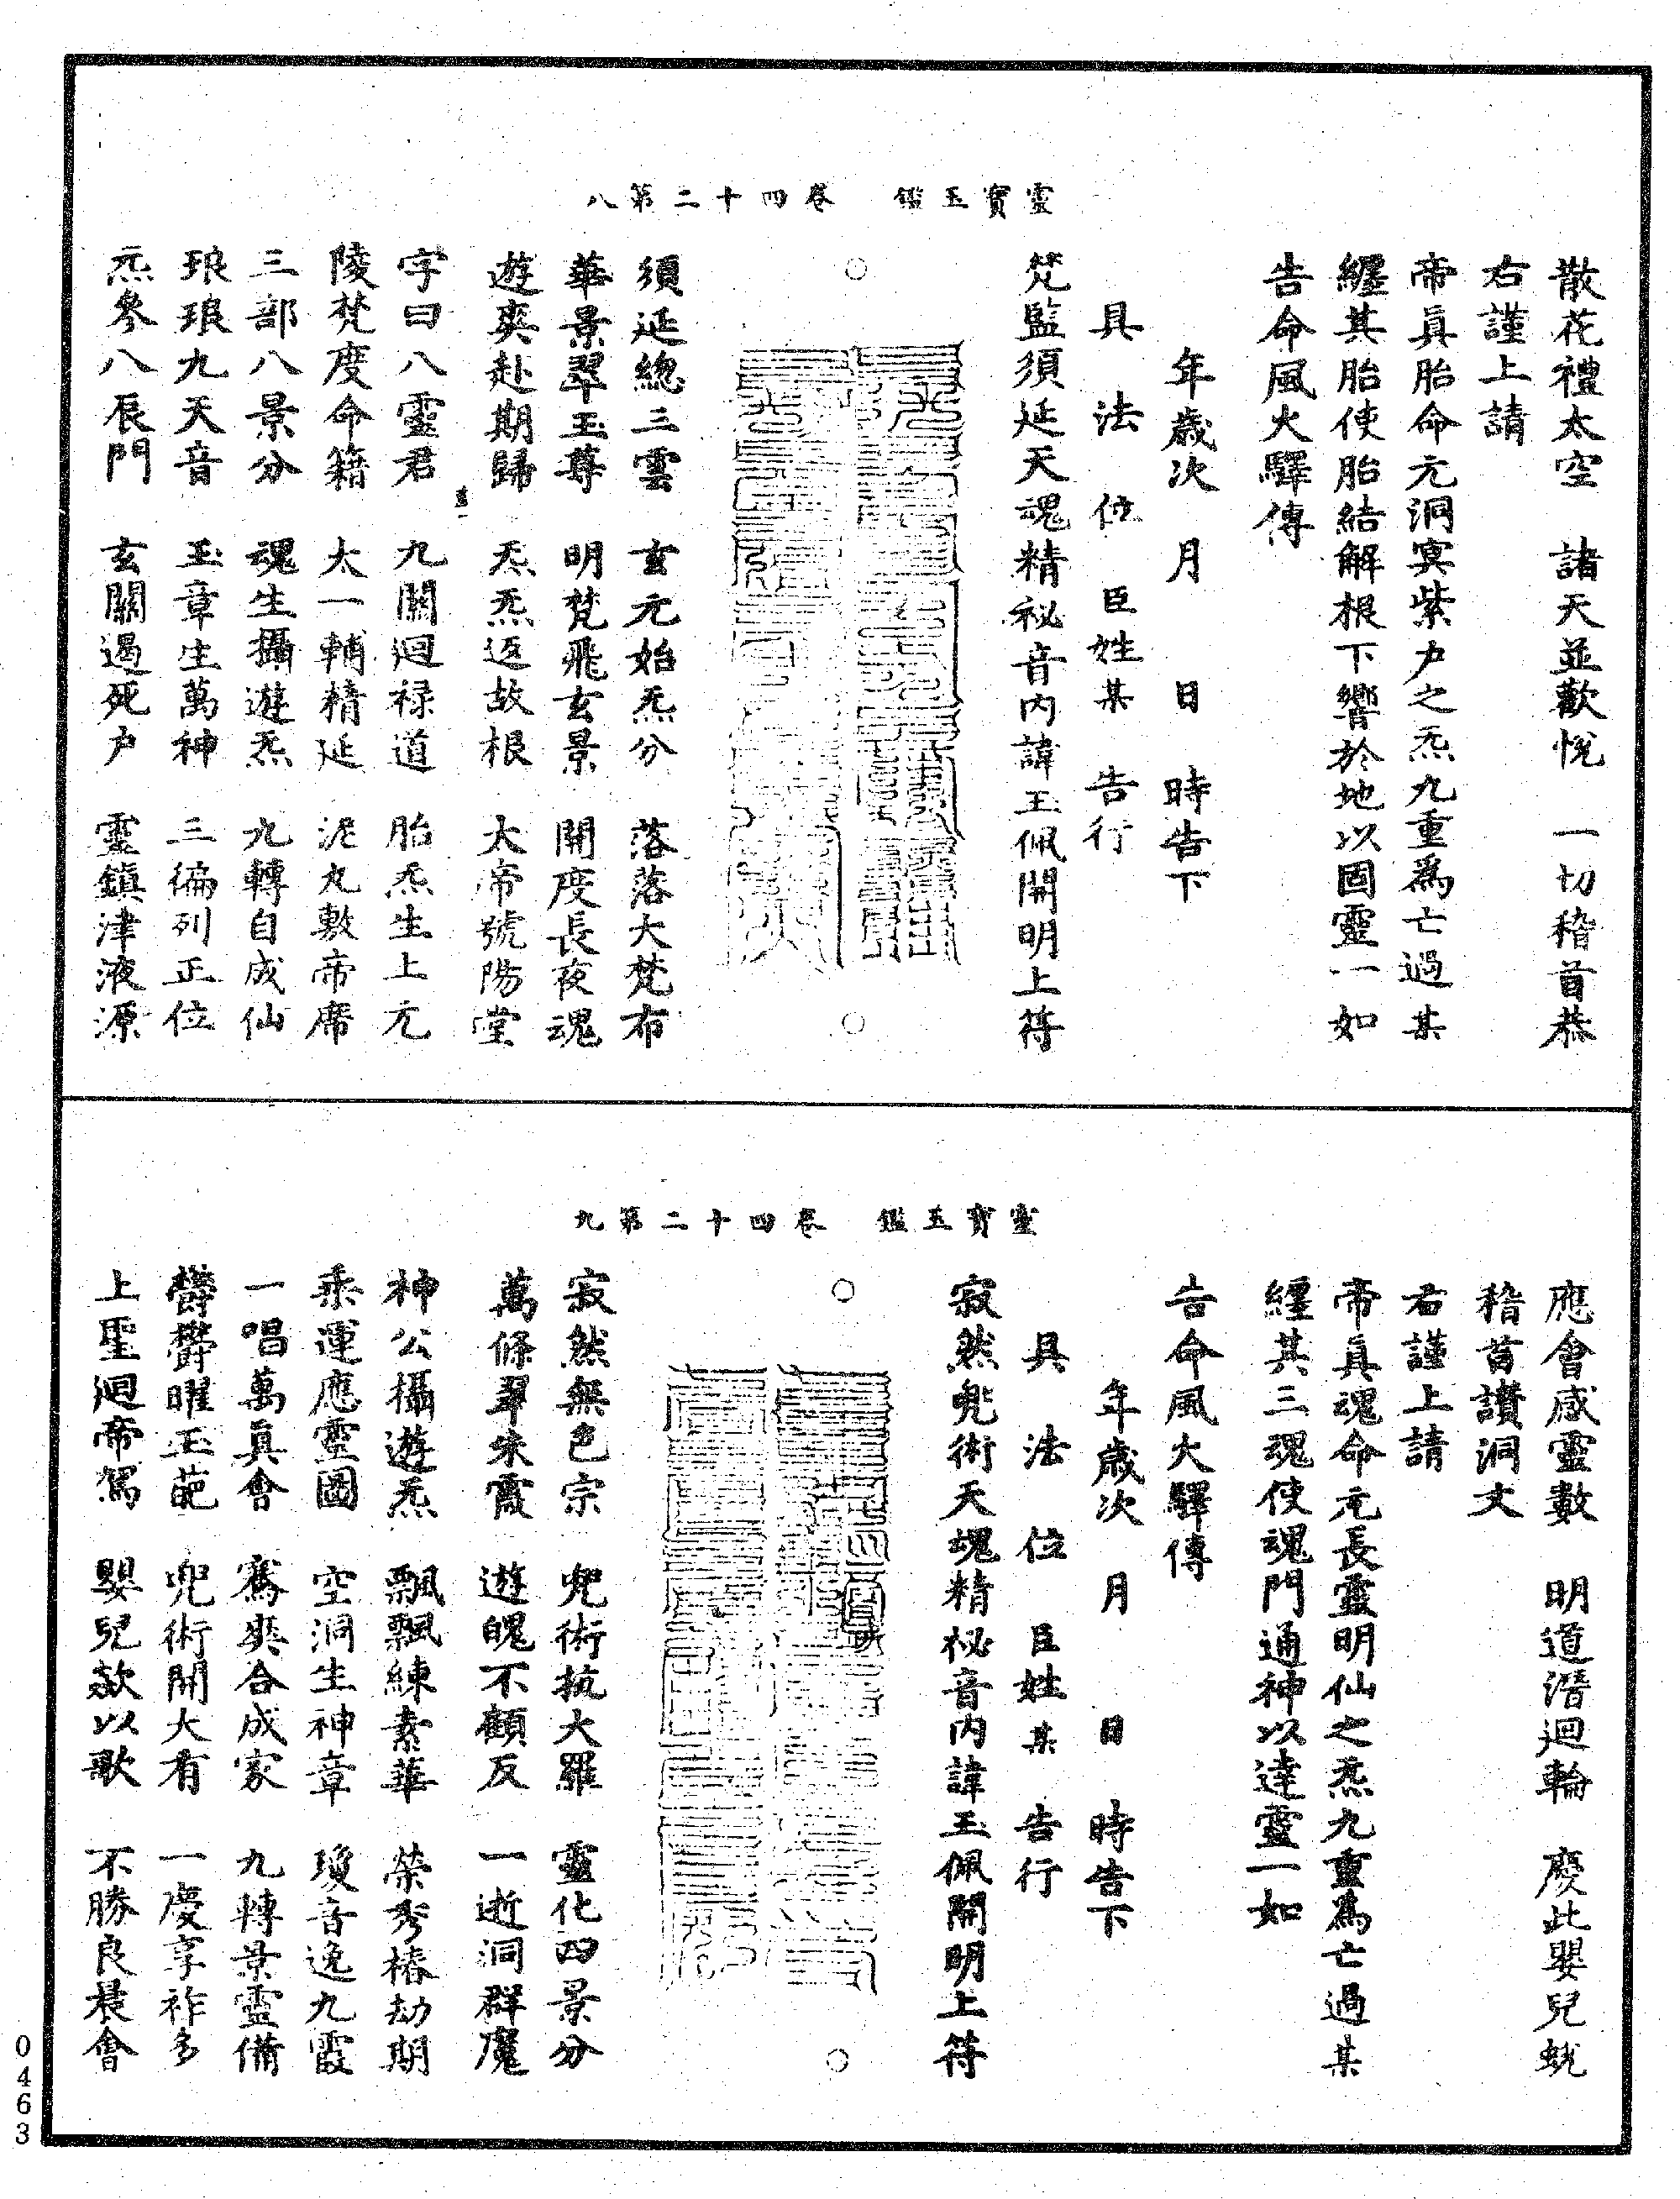 靈寶玉鑑　卷四十二第八
散花禮太空　諸天並歡悅　一切稽首恭
右謹上請
帝真胎命元洞冥紫户之炁九重爲亡過某
纏其胎使胎結解根下響於地以固靈一如
告命風火驛傳
年歲次　月　日　時告下
具　法　位　臣姓某　告行
梵監須延天魂精祕音內諱玉佩開明上符
○　○
須延總三雲　玄元始炁分　落落大梵布
華景翠玉尊　明梵飛玄景　開度長夜魂
遊爽赴期歸　炁炁返故根　太帝號陽堂
字曰八靈君　九關迴祿道　胎炁生上元
陵梵度命籍　太一輔精延　泥丸敷帝席
三部八景分　魂生攝遊炁　九轉自成仙
琅琅九天音　玉章生萬神　三徧列正位
炁參八辰門　玄關遏死户　靈鎮津液源
靈寶玉鑑　卷四十二第九
應會感靈數　明道潛迴輪　慶此嬰兒蛻
稽首讚洞文
右謹上請
帝真魂命元長靈明仙之炁九重爲亡過某
纏其三魂使魂門通神以達靈一如
告命風火驛傳
年歲次　月　日　時告下
具　法　位　臣姓某　告行
寂然兜術天塊精祕音內諱玉佩開明上符
○　○
寂然無色宗　兜術抗大羅　靈化四景分
萬條翠朱霞　遊魄不顧反　一逝洞群魔
神公攝遊炁　飄飄練素華　榮秀椿劫期
乘運應靈圖　空洞生神章　瓊音逸九霞
一唱萬真會　騫爽合成家　九轉景靈備
鬱鬱曜玉葩　兜術開大有　一慶享祚多
上聖迴帝駕　嬰兒歘以歌　不勝良晨會
0463